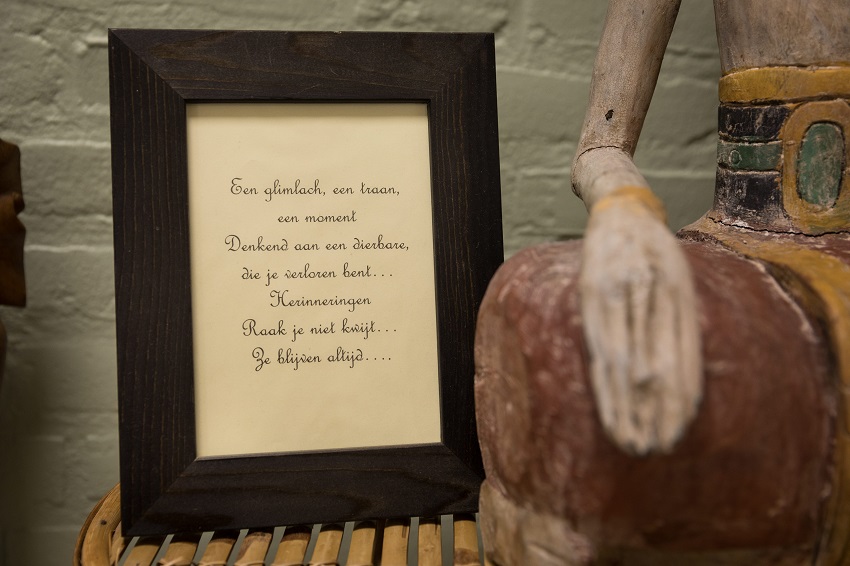 Een glimlach, een traan,
een moment
Denkend aan een dierbare,
die je verloren bent...
Herinneringen
Raak je niet kwijt...
Ze blijven altijd....